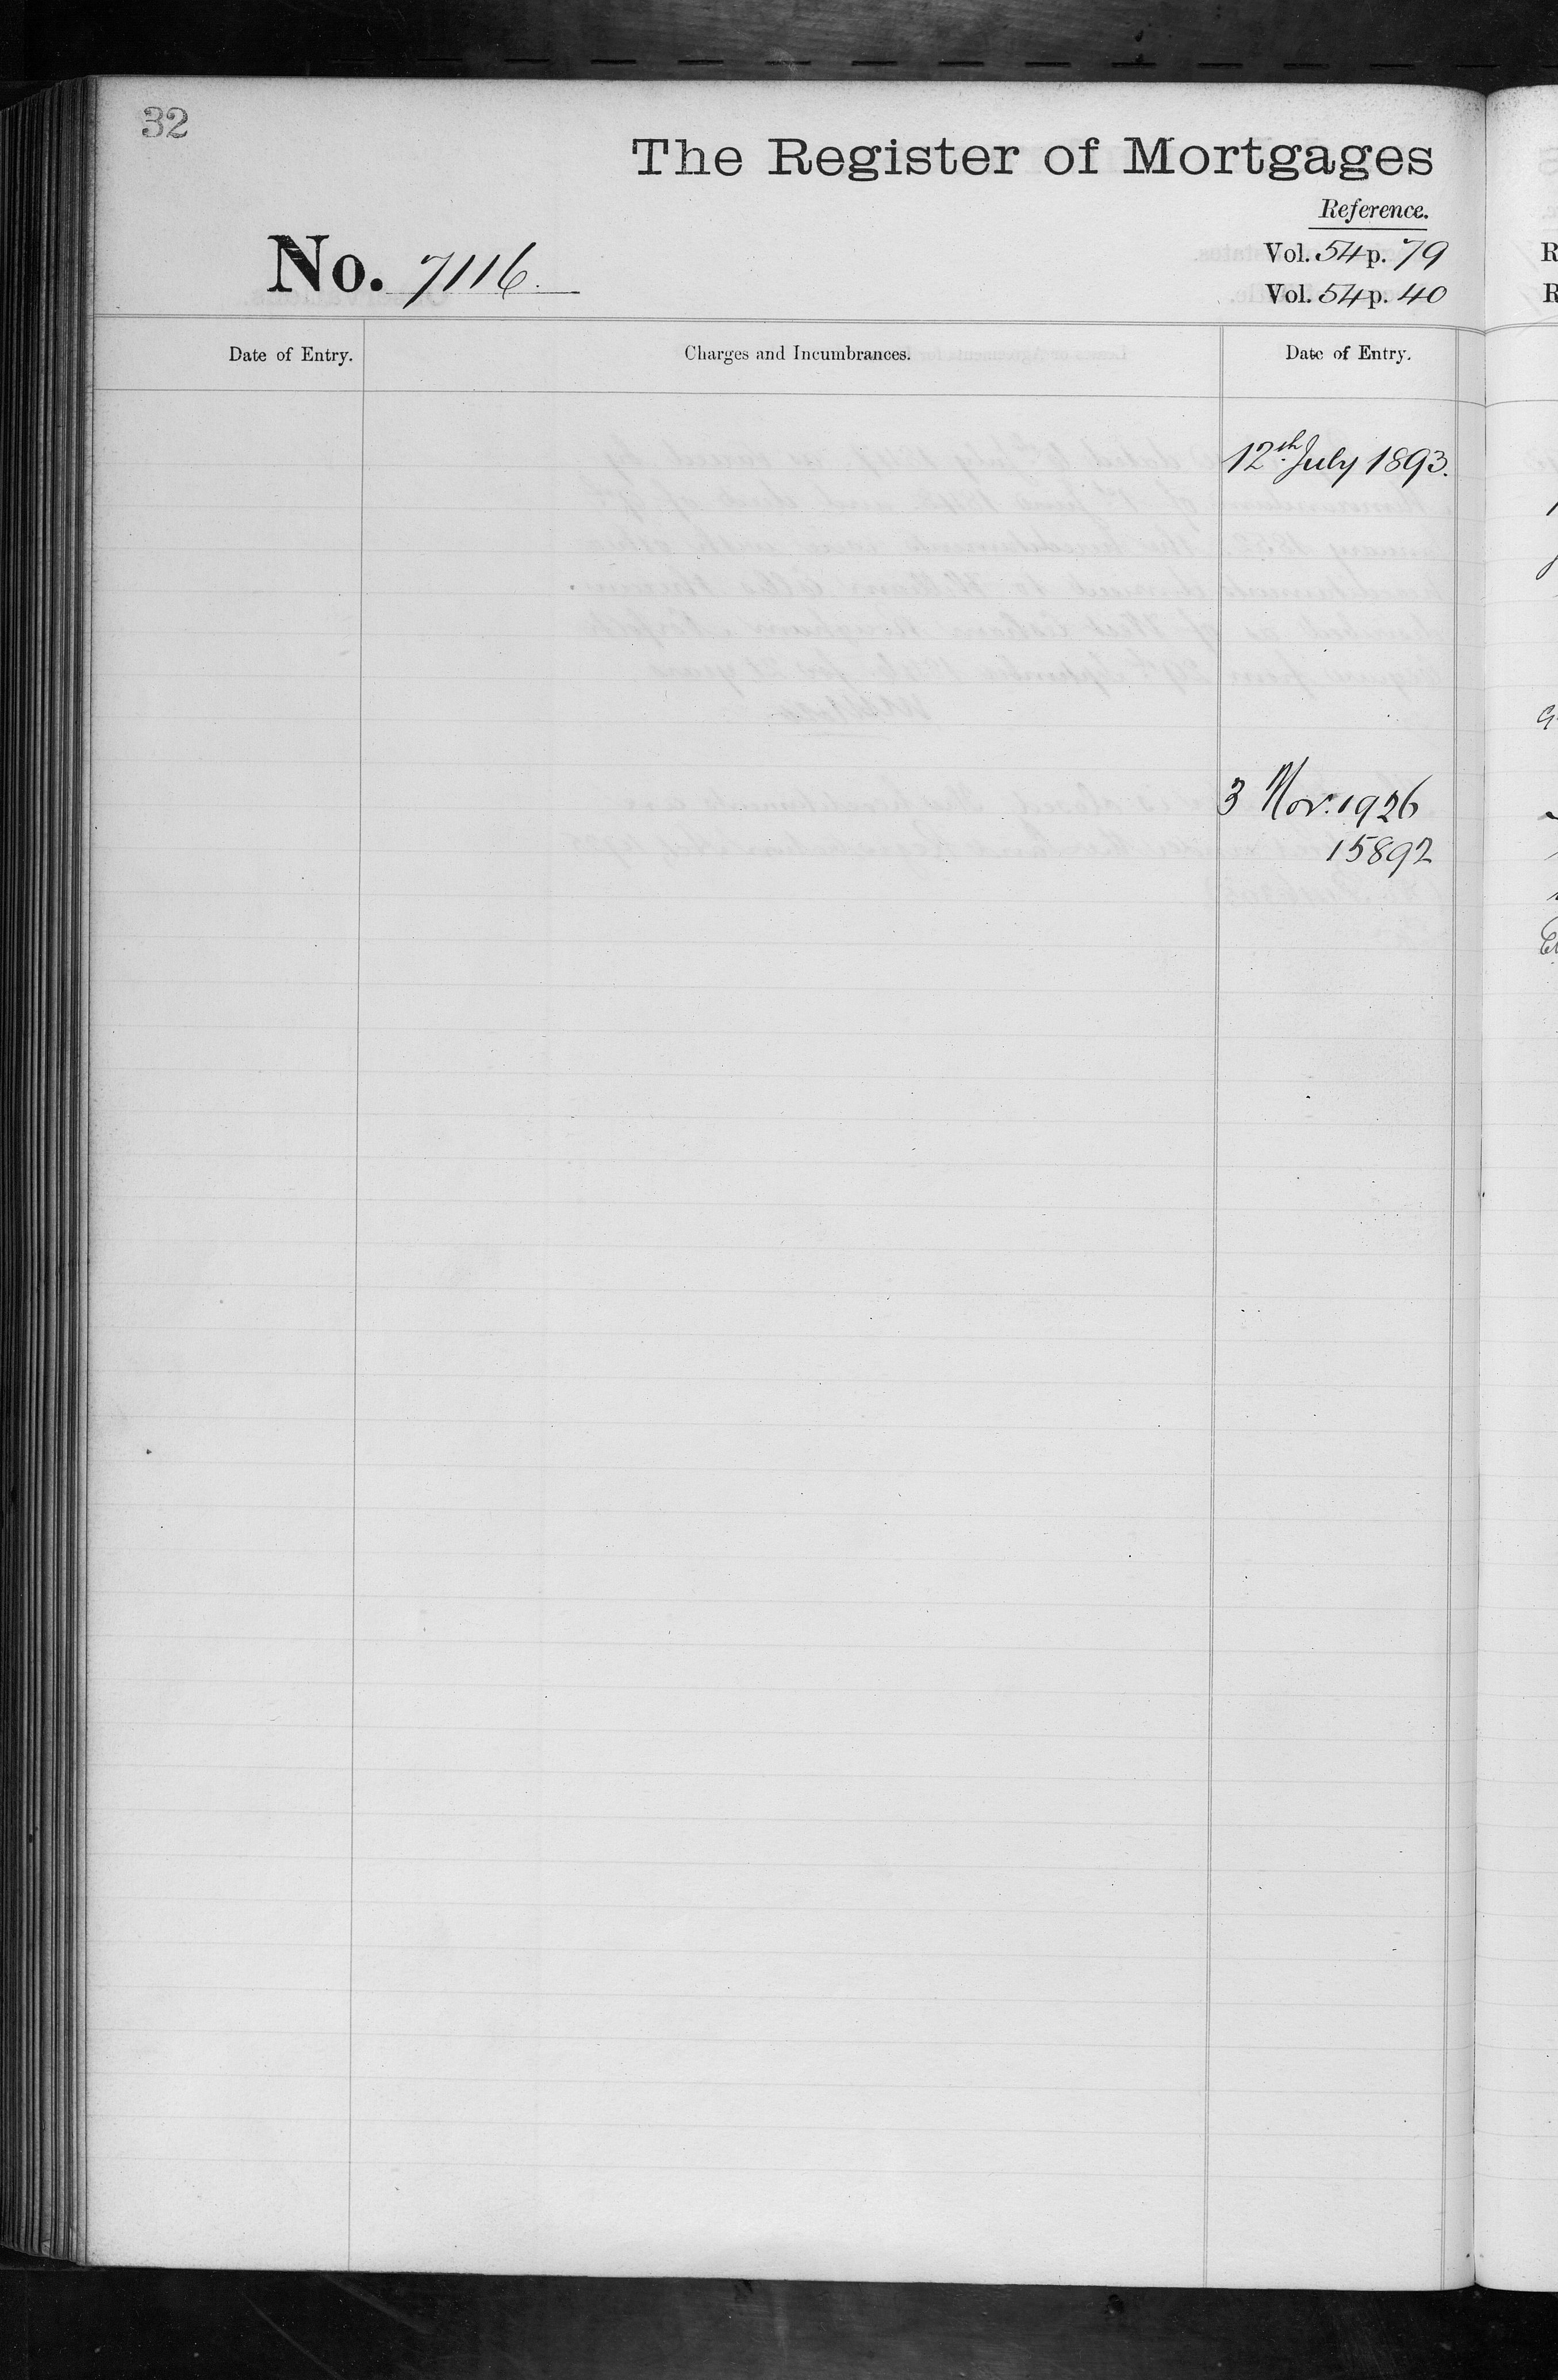 32
The Register of Mortgages
Reference.
No. 7116.
Vol. 54 p. 79
Vol. 54 p. 40
Date of Entry.
Charges and Incumbrances.
Date of Entry.
12th July 1893.
3 Nov. 1926
15892